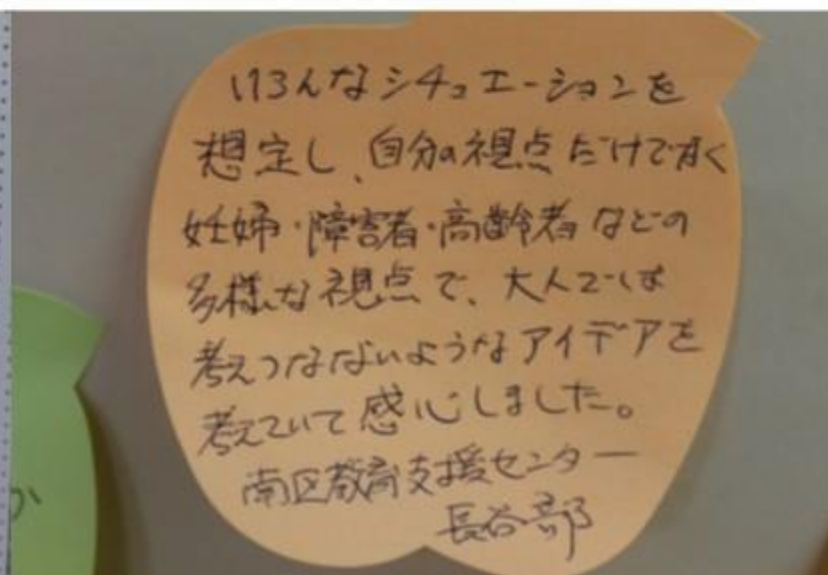 いろんなシチュエーションを
想定し、自分の視点だけでなく
妊婦・障害者・高齢者などの
多様な視点で、大人では
考えつなないようなアイデアを
考えていて感心しました。
南区教育支援センター
長谷部
か